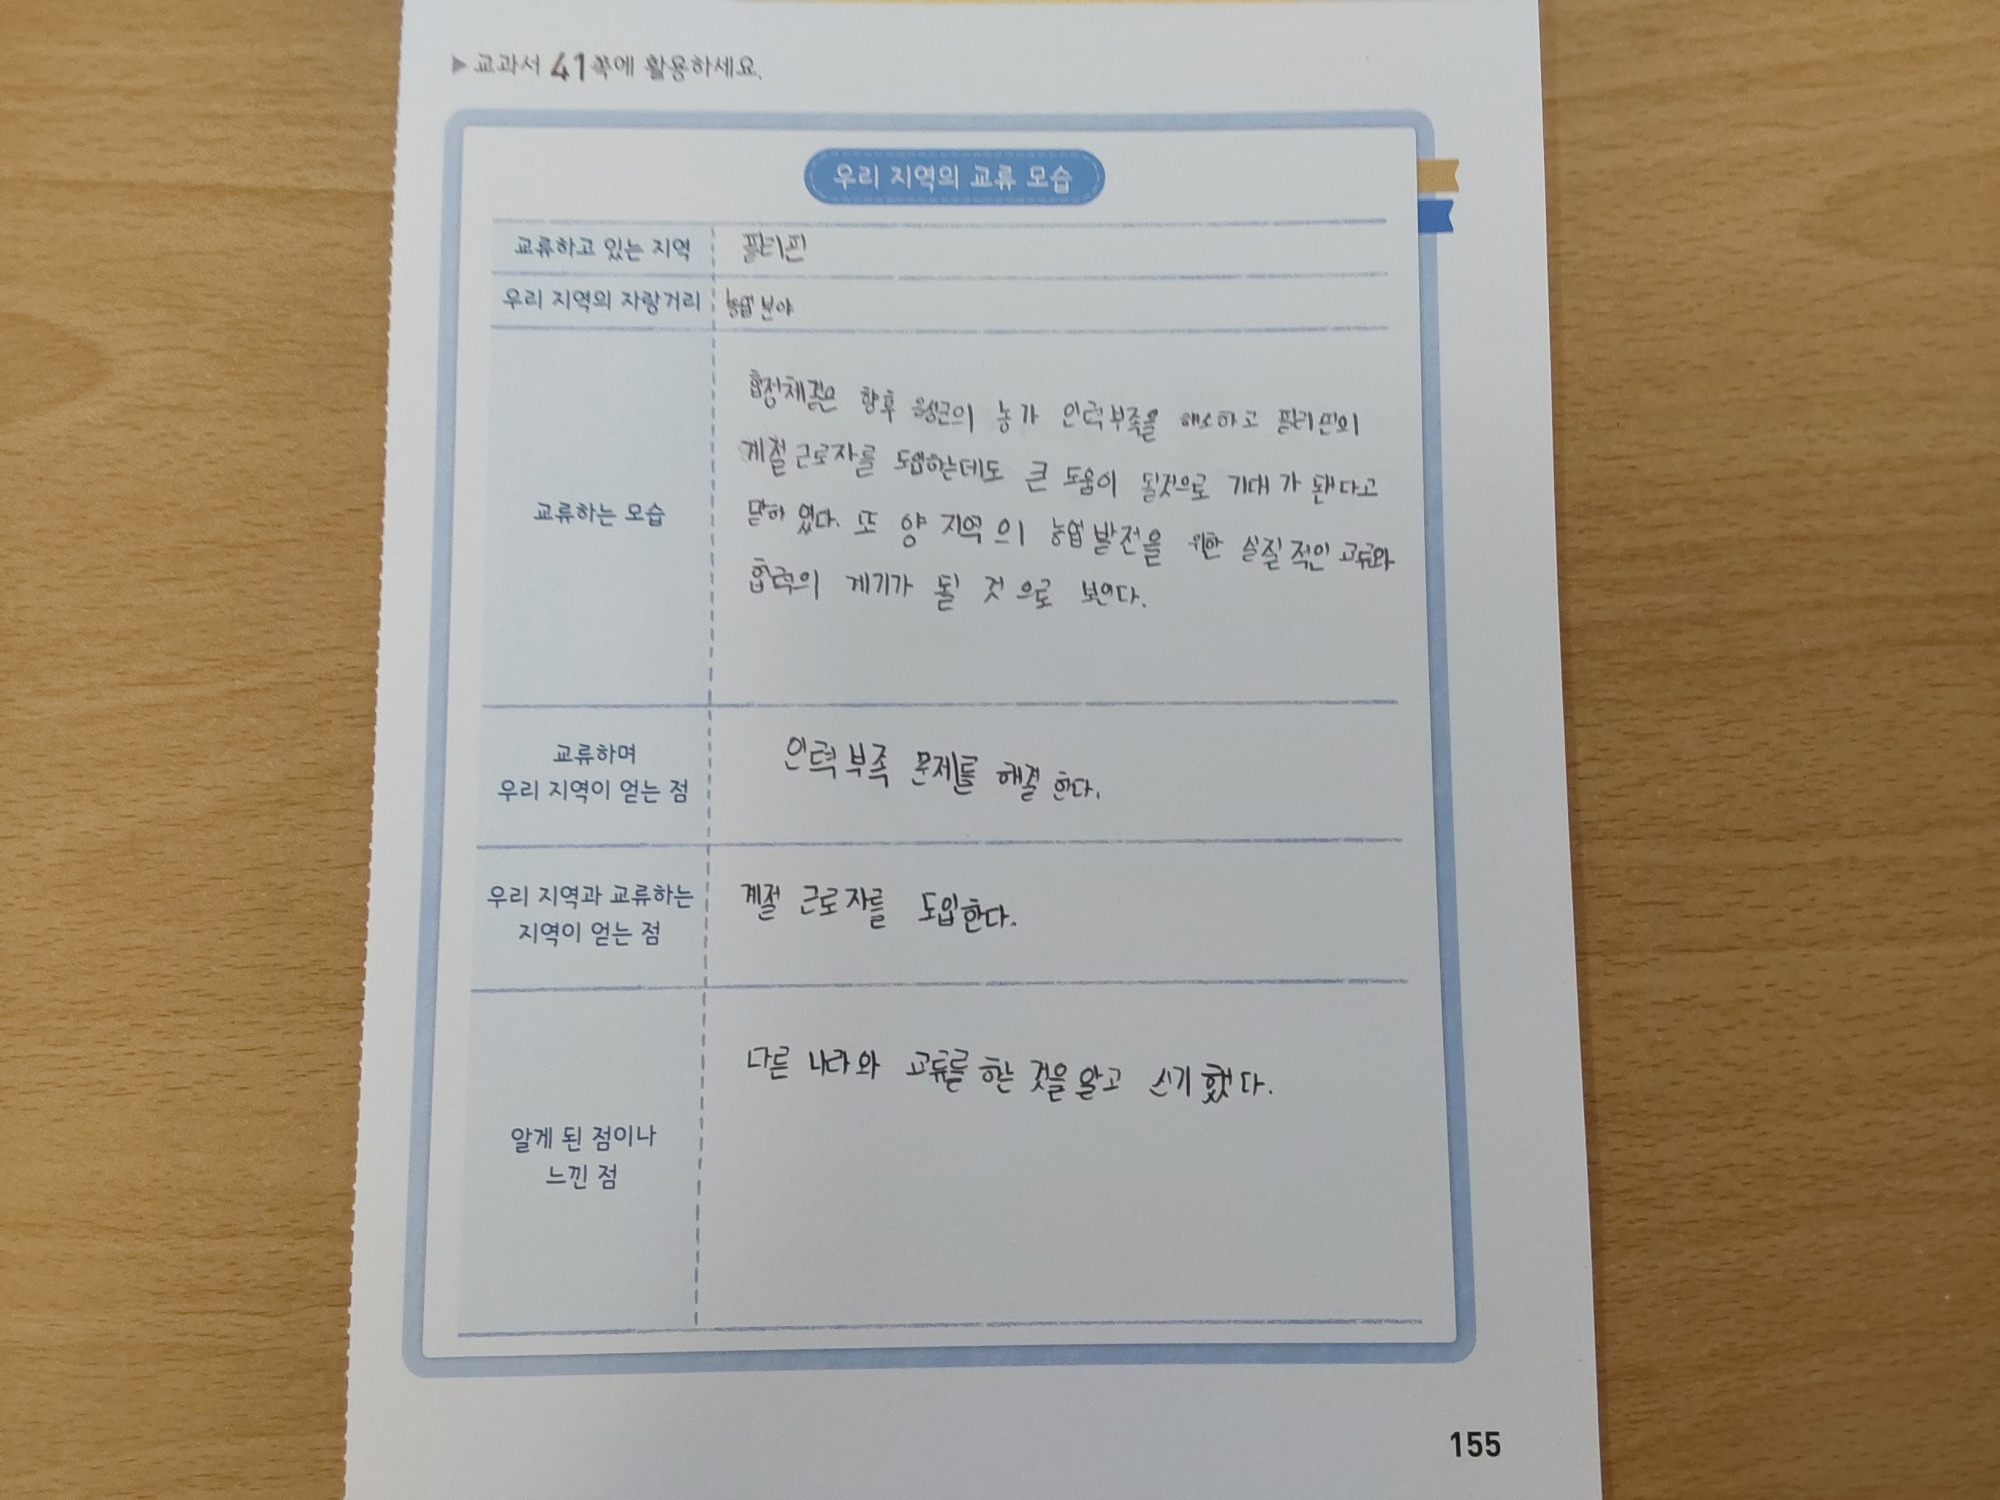 ▶교과서 41쪽에 활용하세요.
우리 지역의 교류 모습
교류하고 있는 지역
필리핀
우리 지역의 자랑거리
농업 분야
교류하는 모습
협정체결은 향후 의 농가 인력부족을 해소하고 필리핀의
계절 근로자를 도입하는데도 큰 도움이 될것으로 기대가 됀다고
있다. 또 양 지역의 농업발전을 위한 실질적인 교류와
협력의 계기가 될 것으로 보인다.
교류하며
우리 지역이 얻는 점
인력부족 문제를 해결한다.
우리 지역과 교류하는
지역이 얻는 점
계절 근로자를 도입한다.
알게 된 점이나
느낀 점
다른 나라와 교류를 하는 것을 알고 했다.
155